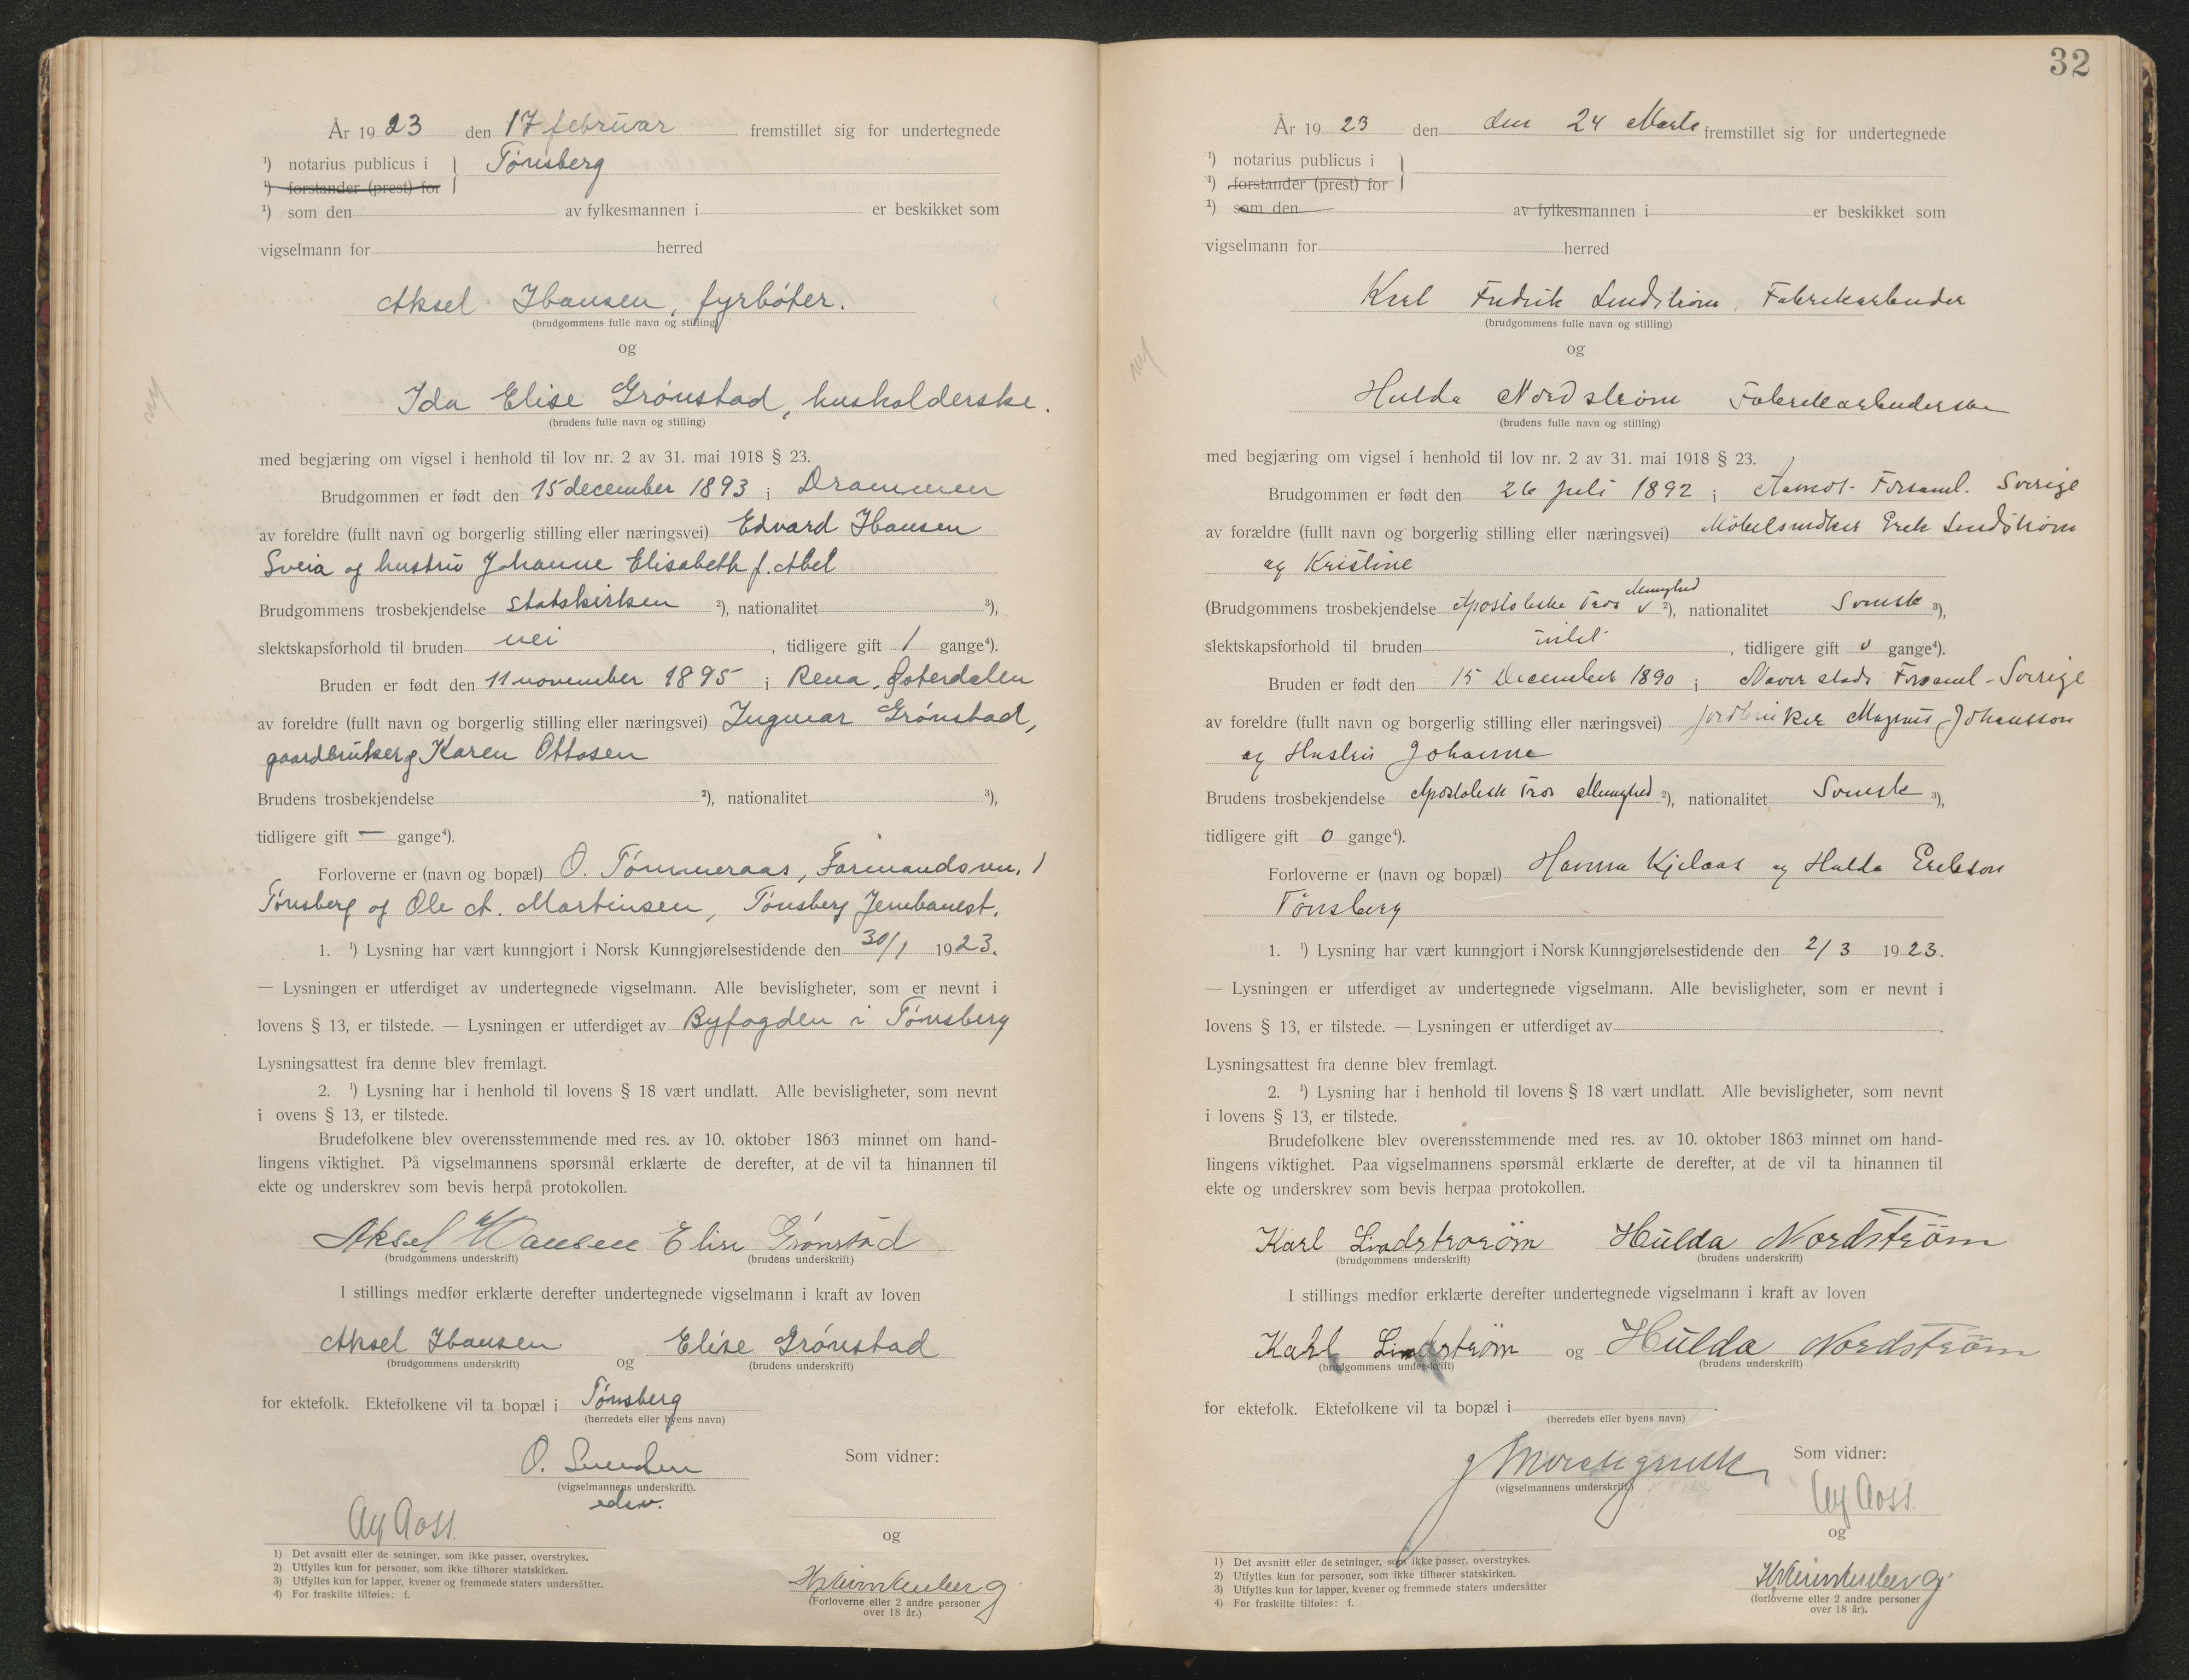 År 19 23 den 17 februar fremstillet sig for undertegnede
¹) notarius publicus i } Tønsberg
¹) forstander (prest) for
¹) som den av fylkesmannen i er beskikket som
vigselmann for herred
Aksel Hansen, fyrbøter.
(brudgommens fulle navn og stilling)
og
Ida Elise Grønstad, husholderske.
(brudens fulle navn og stilling)
med begjæring om vigsel i henhold til lov nr. 2 av 31. mai 1918 § 23.
Brudgommen er født den 15 december 1893 i Drammen
av foreldre (fullt navn og borgerlig stilling eller næringsvei) Edvard Hansen
Sveia og hustru Johanne Elisabeth f. Abel
Brudgommens trosbekjendelse statskirken ²), nationalitet ³),
slektskapsforhold til bruden nei , tidligere gift 1 gange⁴).
Bruden er født den 11 november 1895 i Rena, Østerdalen
av foreldre (fullt navn og borgerlig stilling eller næringsvei) Ingmar Grønstad,
gaardbruker og Karen Ottosen
Brudens trosbekjendelse ²), nationalitet ³),
tidligere gift — gange⁴).
Forloverne er (navn og bopæl) O. Tømmeraas, Farmandsvn. 1
Tønsberg og Ole A. Martinsen, Tønsberg Jernbanest.
1. ¹) Lysning har vært kunngjort i Norsk Kunngjørelsestidende den 30/1 1923.
— Lysningen er utferdiget av undertegnede vigselmann. Alle bevisligheter, som er nevnt i
lovens § 13, er tilstede. — Lysningen er utferdiget av Byfogden i Tønsberg
Lysningsattest fra denne blev fremlagt.
2. ¹) Lysning har i henhold til lovens § 18 vært undlatt. Alle bevisligheter, som nevnt
i ovens § 13, er tilstede.
Brudefolkene blev overensstemmende med res. av 10. oktober 1863 minnet om hand-
lingens viktighet. På vigselmannens spørsmål erklærte de derefter, at de vil ta hinannen til
ekte og underskrev som bevis herpå protokollen.
Aksel Hansen Elise Grønstad
(brudgommens underskrift) (brudens underskrift)
I stillings medfør erklærte derefter undertegnede vigselmann i kraft av loven
Aksel Hansen og Elise Grønstad
(brudgommens underskrift) (brudens underskrift)
for ektefolk. Ektefolkene vil ta bopæl i Tønsberg
(herredets eller byens navn)
O. Svendsen Som vidner:
(vigselmannens underskrift).
edsv.
Aag Aass.
og
(Forloverne eller 2 andre personer
over 18 år.)
1) Det avsnitt eller de setninger, som ikke passer, overstrykes.
2) Utfylles kun for personer, som ikke tilhører statskirken.
3) Utfylles kun for lapper, kvener og fremmede staters undersåtter.
4) For fraskilte tilføies: f.
32
År 19 23 den den 24 Marts fremstillet sig for undertegnede
¹) notarius publicus i }
¹) forstander (prest) for
¹) som den av fylkesmannen i er beskikket som
vigselmann for herred
Karl Fredrik Lindstrøm, Fabrikarbeider
(brudgommens fulle navn og stilling)
og
Hulda Nordstrøm Fabrikarbeiderske
(brudens fulle navn og stilling)
med begjæring om vigsel i henhold til lov nr. 2 av 31. mai 1918 § 23.
Brudgommen er født den 26 Juli 1892 i Aamot Forsaml. Sverige
av forældre (fullt navn og borgerlig stilling eller næringsvei) Møbelsnedker Erik Lindstrøm
og Kristine
(Brudgommens trosbekjendelse Apostoliske Tros Menighed ²), nationalitet Svensk ³),
slektskapsforhold til bruden intet , tidligere gift 0 gange⁴).
Bruden er født den 15 December 1890 i Naverstads Forsaml - Sverige
av foreldre (fullt navn og borgerlig stilling eller næringsvei) Jordbruker Magnus Johansson
og Hustru Johanne
Brudens trosbekjendelse Apostolisk Tros Menighed ²), nationalitet Svensk ³),
tidligere gift 0 gange⁴).
Forloverne er (navn og bopæl) Hanna Kjelaas og Hulda Erikson
Tønsberg
1. ¹) Lysning har vært kunngjort i Norsk Kunngjørelsestidende den 2/3 1923.
— Lysningen er utferdiget av undertegnede vigselmann. Alle bevisligheter, som er nevnt i
lovens § 13, er tilstede. — Lysningen er utferdiget av .
Lysningsattest fra denne blev fremlagt.
2. ¹) Lysning har i henhold til lovens § 18 vært undlatt. Alle bevisligheter, som nevnt
i lovens § 13, er tilstede.
Brudefolkene blev overensstemmende med res. av 10. oktober 1863 minnet om hand-
lingens viktighet. Paa vigselmannens spørsmål erklærte de derefter, at de vil ta hinannen til
ekte og underskrev som bevis herpaa protokollen.
Karl Lindstroröm Hulda Nordström
(brudgommens underskrift) (brudens underskrift)
I stillings medfør erklærte derefter undertegnede vigselmann i kraft av loven
Karl Lindström og Hulda Nordström
(brudgommens underskrift) (brudens underskrift)
for ektefolk. Ektefolkene vil ta bopæl i .
(herredets eller byens navn)
Som vidner:
(vigselmannens underskrift)
Aag Aass.
og
(forloverne eller 2 andre personer
over 18 år).
1) Det avsnitt eller de setninger, som ikke passer, overstrykes.
2) Utfylles kun for personer, som ikke tilhører statskirken.
3) Utfylles kun for lapper, kvener og fremmede staters undersåtter
4) For fraskilte tilføies: f.